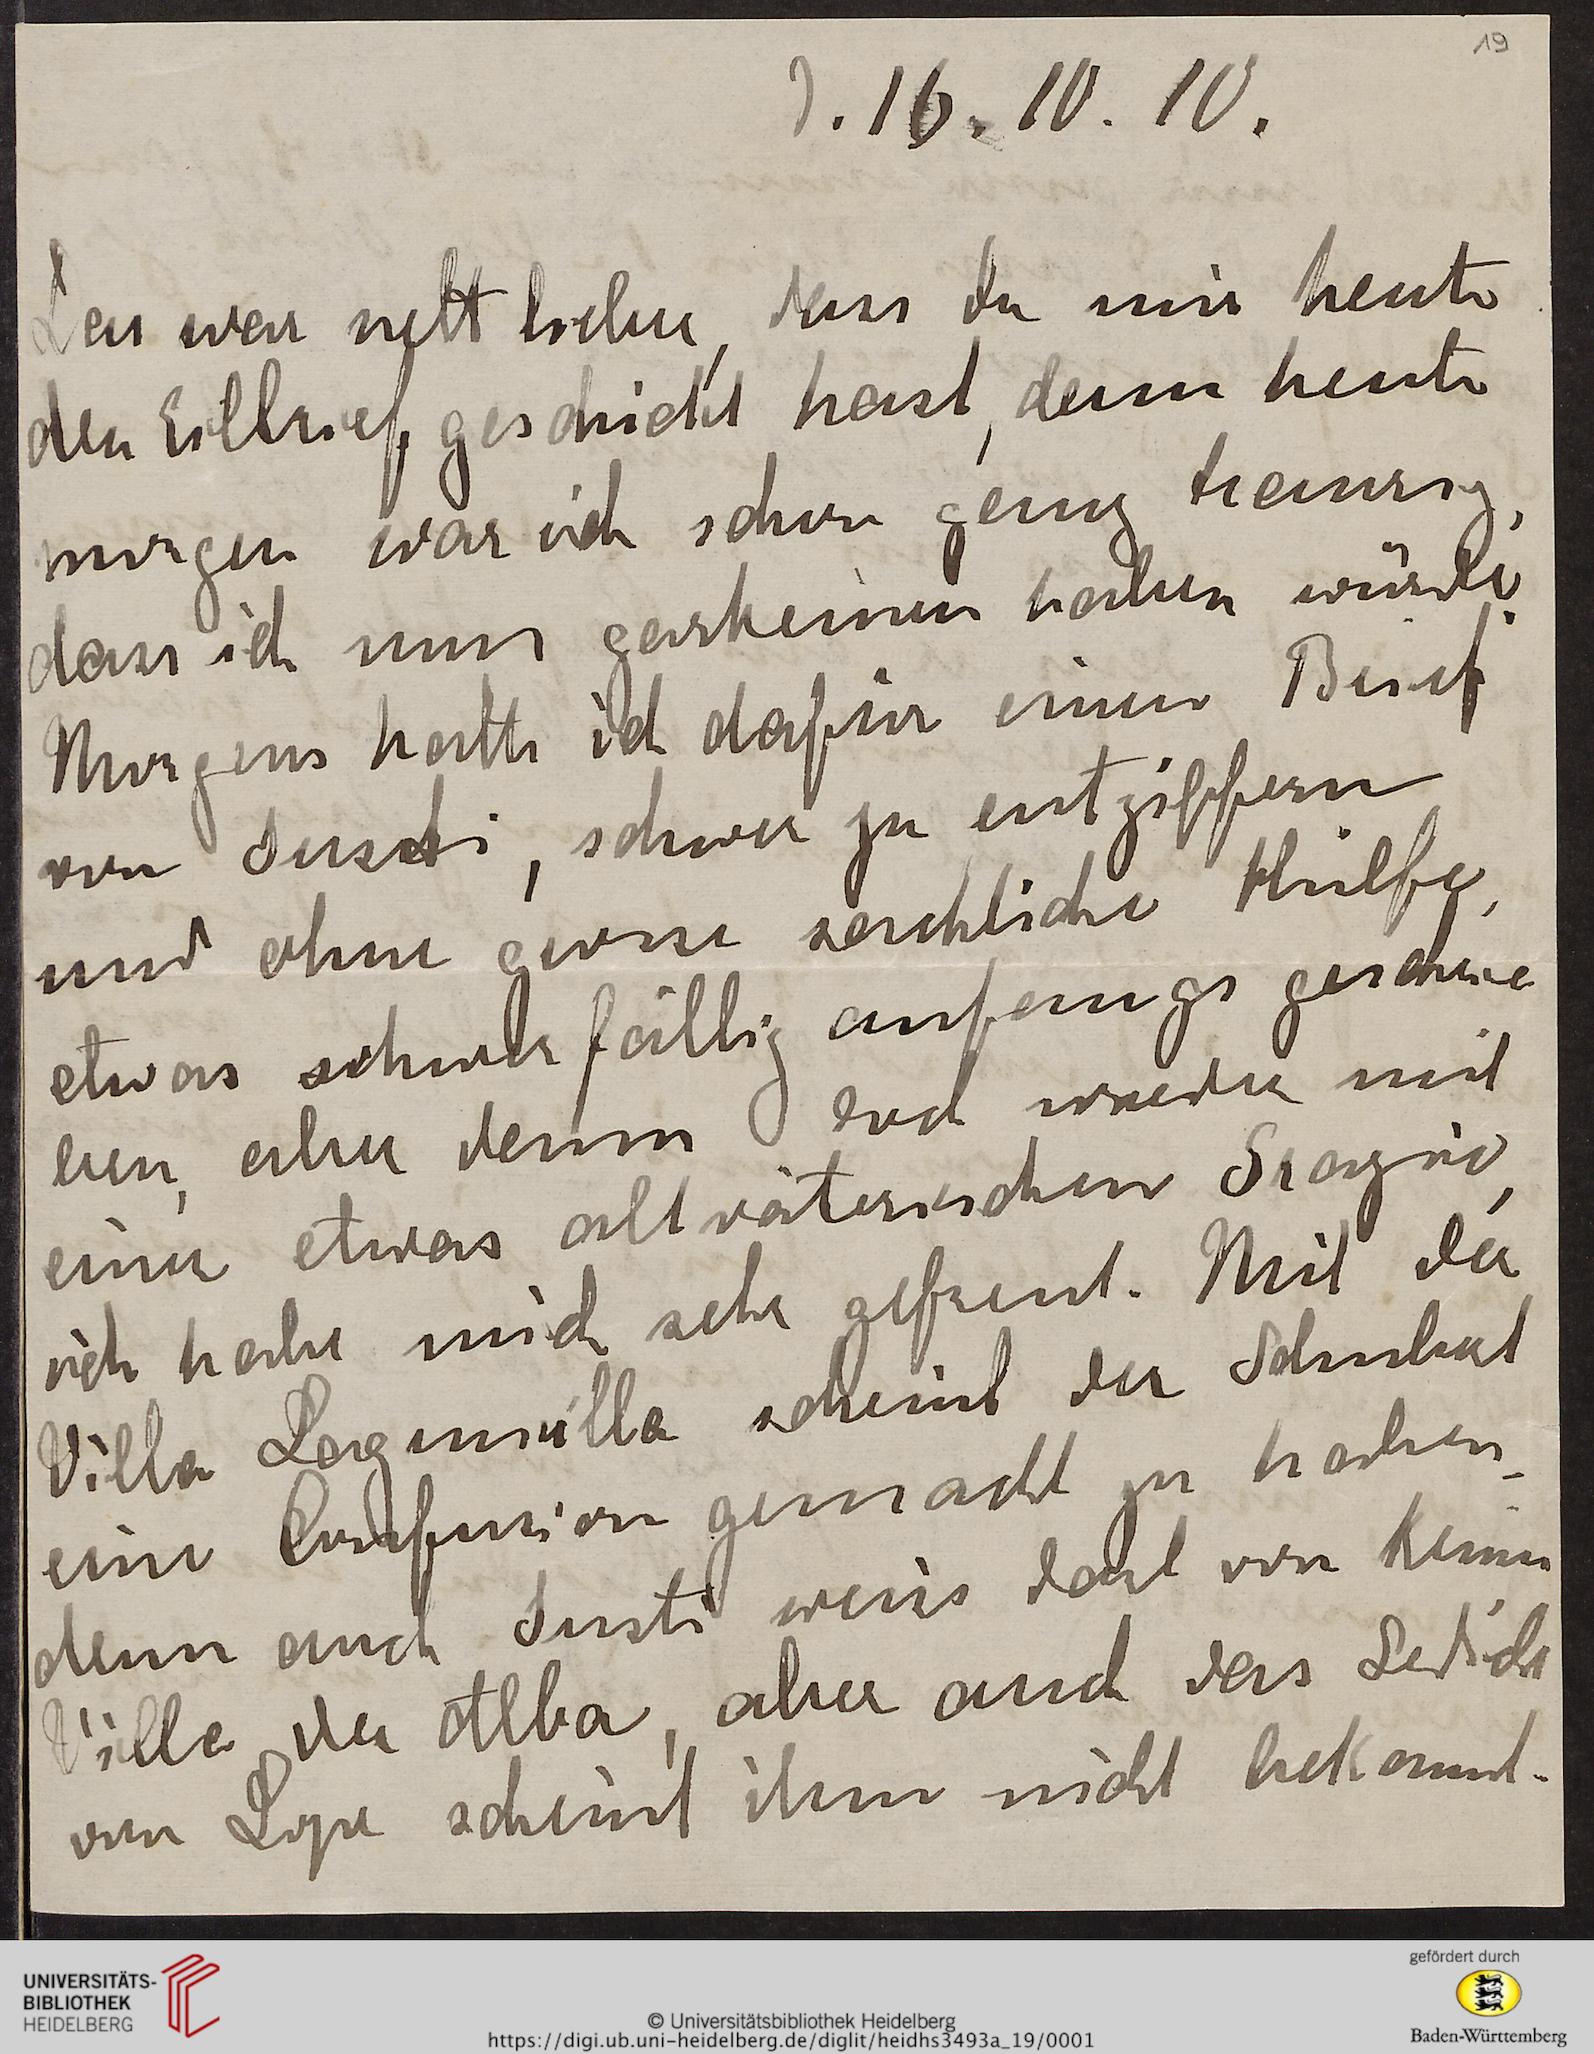 19
J. 16. 10. 10.
Das war nett lieber, dass du mir heute
den Eilbrief geschickt hast, denn heute
morgen war ich schon ganz traurig,
dass ich nun garkeinen haben würde.
Morgens hatte ich dafür einen Brief
von Justi, schwer zu entziffern
und ohne grosse sachliche Hülfe,
etwas schwerfällig anfangs geschrie
ben, aber dann doch wieder mit
einer etwas altväterischen Grazie,
ich habe mich sehr gefreut. Mit der
Villa scheint der Schubart
eine Confusion gemacht zu haben
denn auch Justi weiss dort von keiner
Villa der Alba, aber auch das Gedicht
von Lope scheint ihm nicht bekannt.
UNIVERSITÄTS-
BIBLIOTHEK
HEIDELBERG
© Universitätsbibliothek Heidelberg
https://digi.ub.uni-heidelberg.de/diglit/heidhs3493a_19/0001
gefördert durch
Baden-Württemberg